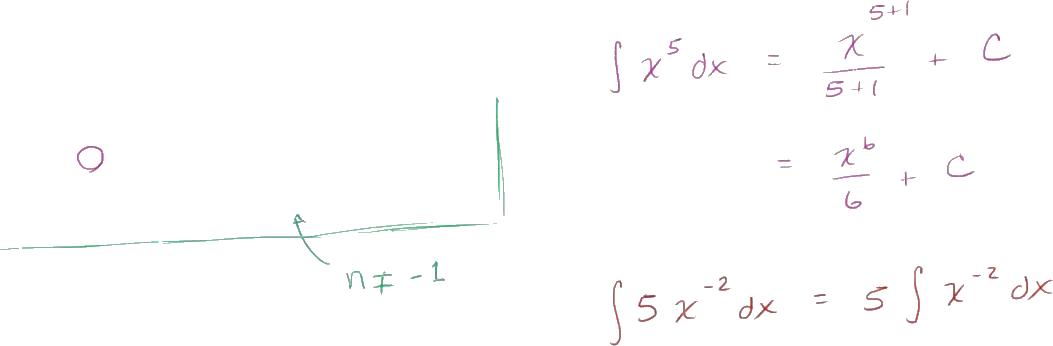 ∫ x⁵ dx = x⁵⁺¹/5+1 + C
= x⁶/6 + C
n ≠ -1
∫ 5 x⁻² dx = 5 ∫ x⁻² dx